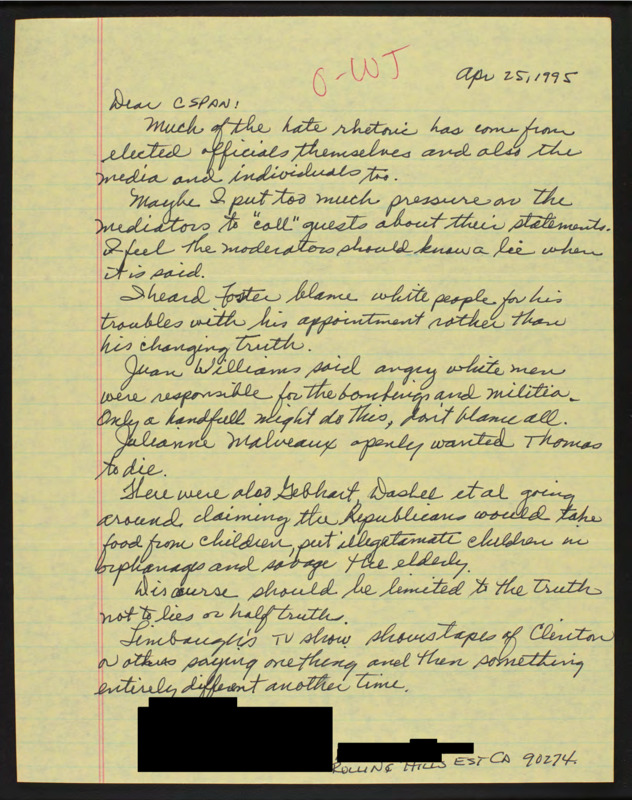 O-WJ
Apr 25, 1995
Dear CSPAN:
Much of the hate rhetoric has come from
elected officials themselves and also the
media and individuals too.
Maybe I put too much pressure on the
mediators to "call" guests about their statements.
I feel the moderators should know a lie when
it is said.
I heard Foster blame white people for his
troubles with his appointment rather than
his changing truth.
Juan Williams said angry white men
were responsible for the bombings and militia.
Only a handfull might do this, don't blame all.
Julianne Malveaux openly wanted Thomas
to die.
There were also Gebhart, Dashel et al going
around claiming the Republicans would take
food from children, put illegetamate children in
orphanages and savage the elderly.
Discourse should be limited to the truth
not to lies or half truths.
Limbaugh's TV show shows tapes of Clinton
or others saying one thing and then something
entirely different another time.
ROLLING HILLS EST CA 90274